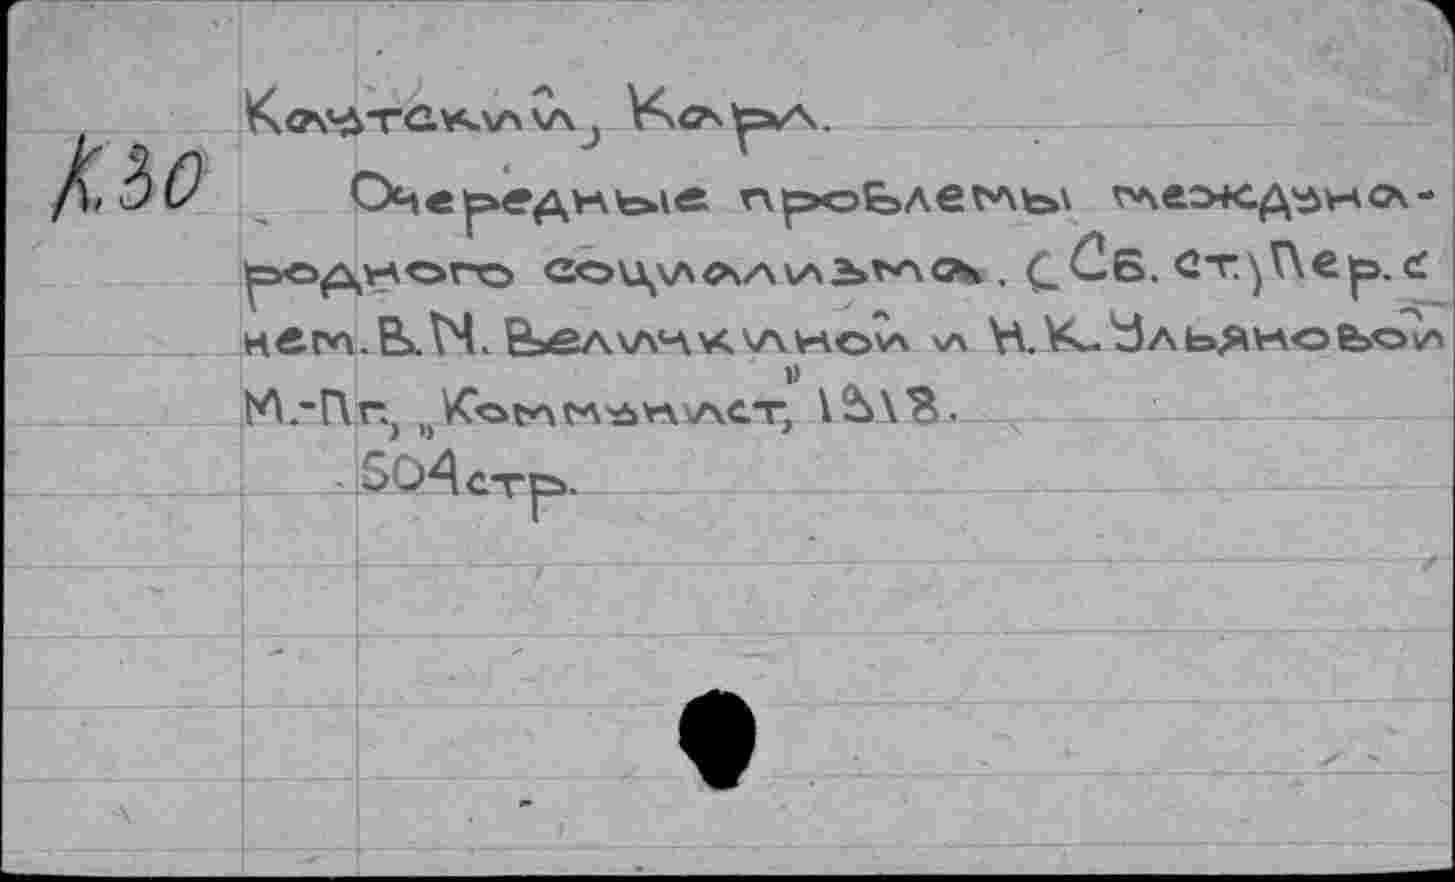 Каутский, Карл.
К.30
Очередные проблемы междуна-
родного социализма. (Сб. ст.) Пер. с
нем. В.И. Величкиной и Н.К. Ульяновой
М.-Пг., „Коммунист", 1918.
504 стр.